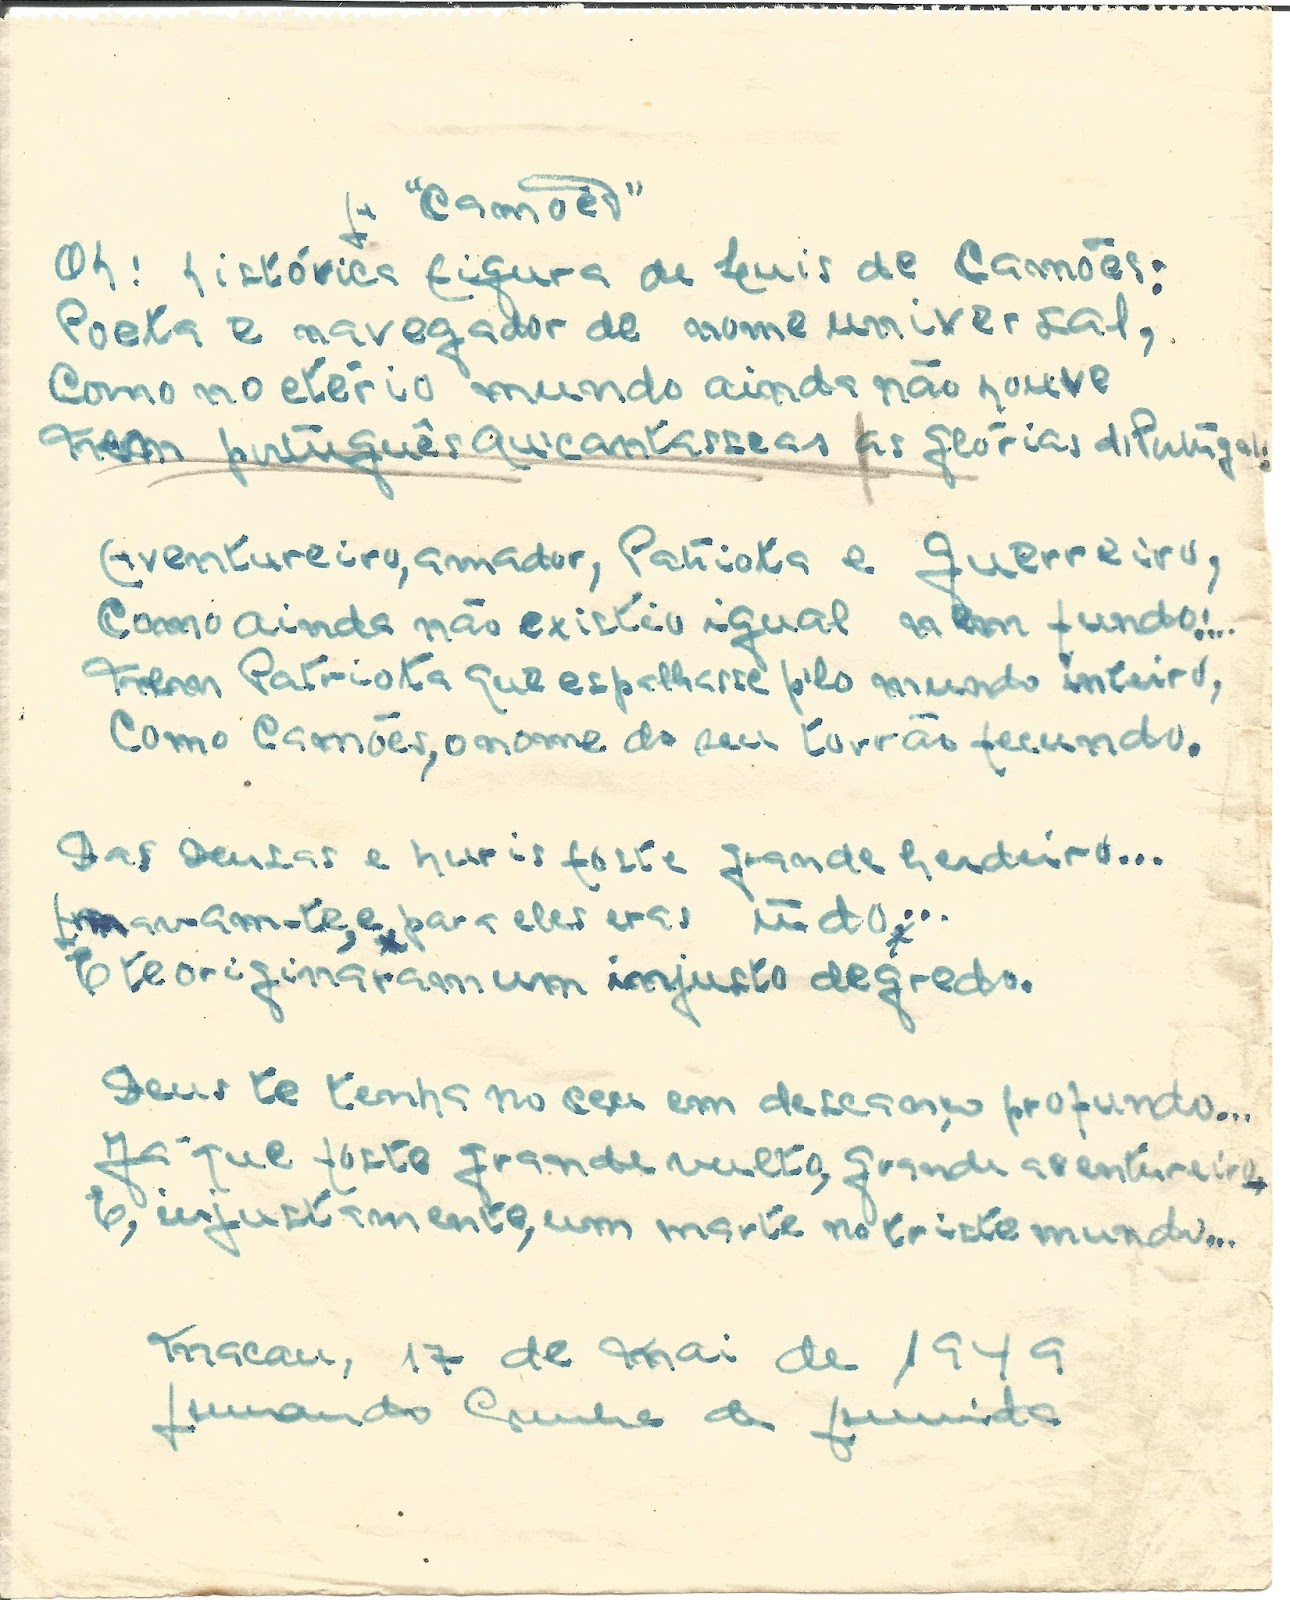 A "Camões"
Oh! histórica figura de Luis de Camões:
Poeta e navegador de nome universal,
Como no etério mundo ainda não houve
Nem português que cantasse as as glórias de Portugal:
Aventureiro, amador, Patriota e Guerreiro,
Como ainda não existiu igual nem fundo!...
Nem Patriota que espalhasse p'lo mundo inteiro,
Como Camões, o nome do seu torrão fecundo.
Das Deusas e huris foste grande herdeiro...
Amavam-te, e, para eles eras tudo...
E te originaram um injusto degredo.
Deus te tenha no ceu em descanço profundo...
Já que foste grande vulto, grande aventureiro,
E, injustamente, um marte no triste mundo...
Macau, 17 de Mai de 1949
Armando Cunha de Almeida